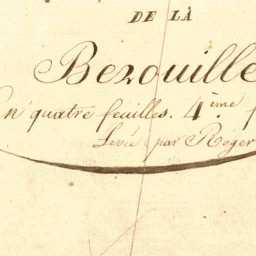 DE LÀ
Bezouille
n quatre feuilles. 4.ème
Levée par Roger